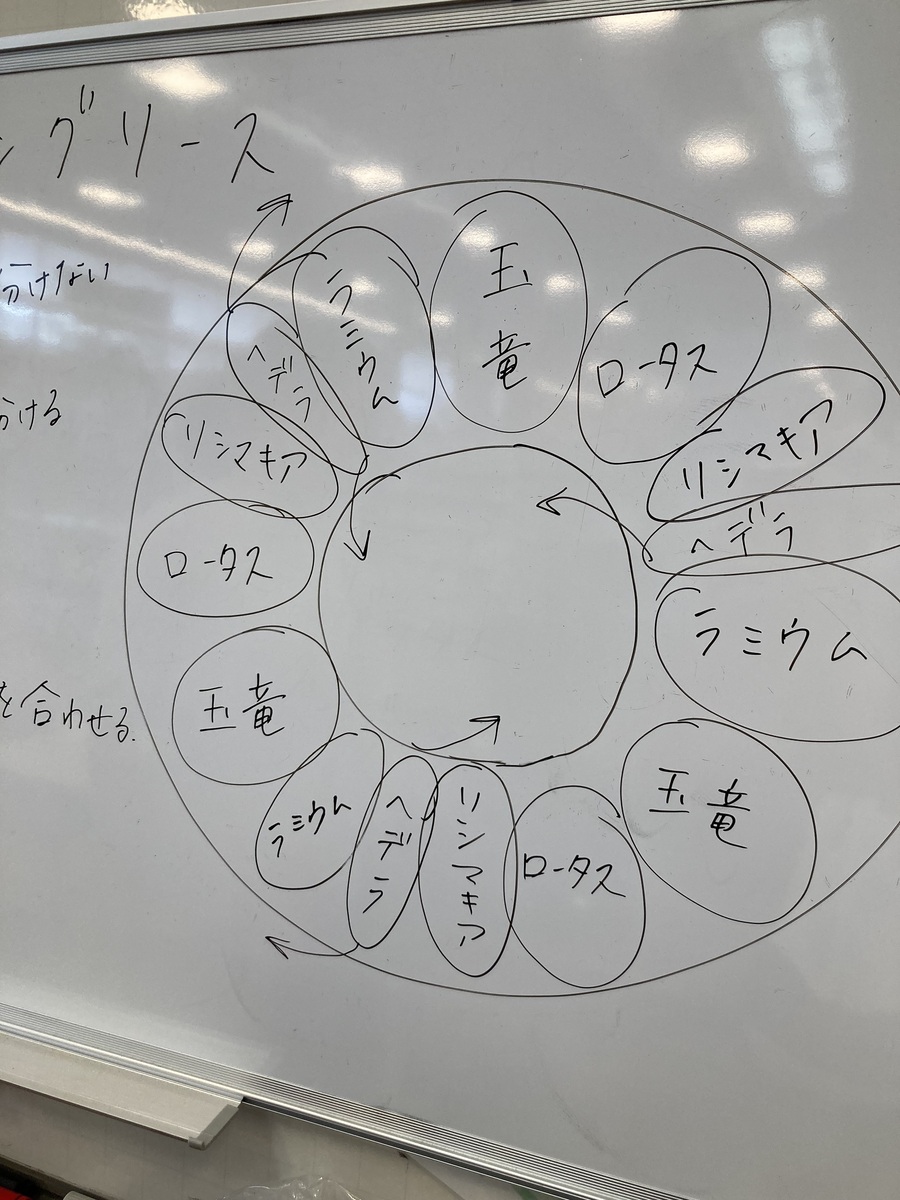 グリース
分けない
分ける
を合わせる.
玉竜
ロータス
リシマキア
ヘデラ
ラミウム
玉竜
ロータス
リシマキア
ヘデラ
ラミウム
玉竜
ロータス
リシマキア
ヘデラ
ラミウム